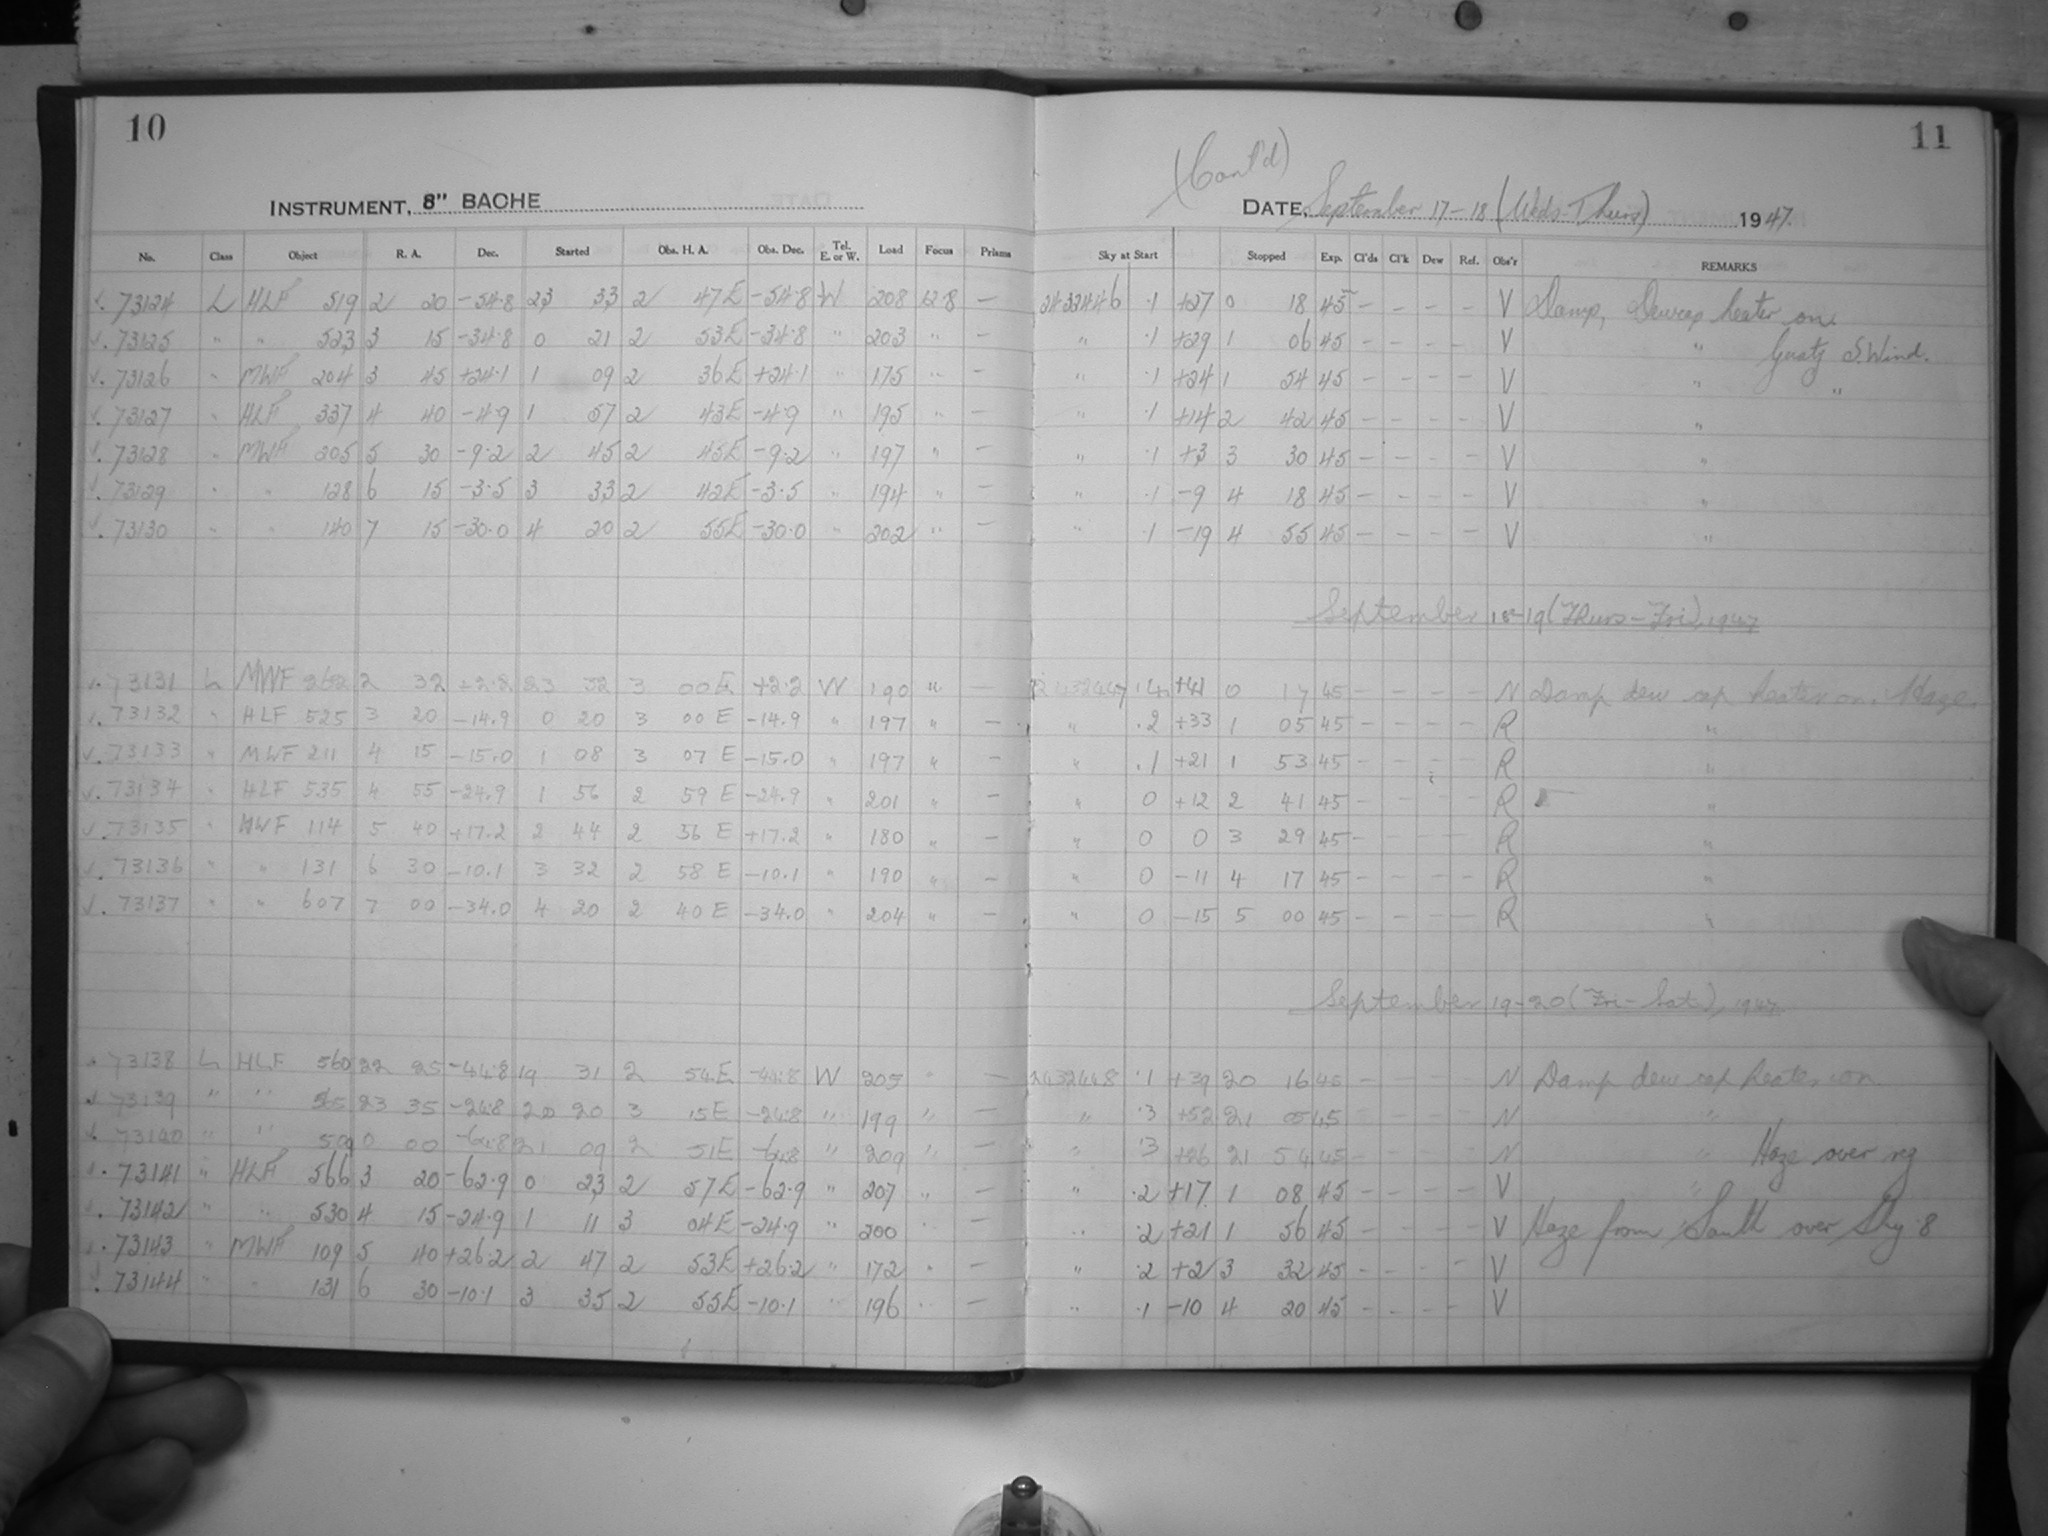 10
11
(Cont'd)
INSTRUMENT, 8" BACHE DATE, September 17-18 (Weds-Thurs) 1947.
No. Class Object R. A. Dec. Started Obs. H. A. Obs. Dec. Tel. E. or W. Load Focus Prisms Sky at Start Stopped Exp. Cl'ds Cl'k Dew Ref. Obs'r REMARKS
√. 73124 L HLF 519 2 20 -54.8 23 33 2 47E -54.8 W 208 12.8 — 2432446 .1 +27 0 18 45 - - - - V Damp, Dewcap heater on.
√. 73125 " " 523 3 15 -34.8 0 21 2 53E -34.8 " 203 " — " .1 +29 1 06 45 - - - - V " Gusty S. Wind.
√. 73126 " MWF 204 3 45 +24.1 1 09 2 36E +24.1 " 175 " — " .1 +24 1 54 45 - - - - V " "
√. 73127 " HLF 337 4 40 -4.9 1 57 2 43E -4.9 " 195 " — " .1 +14 2 42 45 - - - - V "
√. 73128 " MWF 205 5 30 -9.2 2 45 2 45E -9.2 " 197 " — " .1 +3 3 30 45 - - - - V "
√. 73129 " " 128 6 15 -3.5 3 33 2 42E -3.5 " 194 " — " .1 -9 4 18 45 - - - - V "
√. 73130 " " 140 7 15 -30.0 4 20 2 55E -30.0 " 202 " — " .1 -19 4 55 45 - - - - V "
September 18-19 (Thurs-Fri), 1947
√. 73131 L MWF 2 32 23 32 3 00E +2.2 W 190 " — 2432447 .4 +41 0 17 45 - - - - N Damp dew cap heater on. Haze.
√. 73132 " HLF 525 3 20 -14.9 0 20 3 00 E -14.9 " 197 " — " .2 +33 1 05 45 - - - - R "
√. 73133 " MWF 211 4 15 -15.0 1 08 3 07 E -15.0 " 197 " — " .1 +21 1 53 45 - - - - R "
√. 73134 " HLF 535 4 55 -24.9 1 56 2 59 E -24.9 " 201 " — " 0 +12 2 41 45 - - - - R "
√. 73135 " MWF 114 5 40 +17.2 2 44 2 56 E +17.2 " 180 " — " 0 0 3 29 45 - - - - R "
√. 73136 " " 131 6 30 -10.1 3 32 2 58 E -10.1 " 190 " — " 0 -11 4 17 45 - - - - R "
√. 73137 " " 607 7 00 -34.0 4 20 2 40 E -34.0 " 204 " — " 0 -15 5 00 45 - - - - R "
September 19-20 (Fri-Sat), 1947
73138 L HLF 560 22 25 -44.8 19 31 2 54E -44.8 W 205 " — 2432448 .1 +39 20 16 45 - - - - N Damp dew cap heater on
73139 " " 23 35 -24.8 20 20 3 15E -24.8 " 199 " — " .3 +52 21 05 45 - - - - N "
73140 " " 509 0 00 -64.8 21 09 2 51E -64.8 " 209 " — " .3 +26 21 54 45 - - - - N " Haze over
√. 73141 " HLF 566 3 20 -62.9 0 23 2 57E -62.9 " 207 " — " .2 +17 1 08 45 - - - - V "
√. 73142 " " 530 4 15 -24.9 1 11 3 04E -24.9 " 200 — " .2 +21 1 56 45 - - - - V Haze from South over Sky .8
√. 73143 " MWF 109 5 40 +26.2 2 47 2 53E +26.2 " 172 " — " .2 +2 3 32 45 - - - - V
√. 73144 " " 131 6 30 -10.1 3 35 2 55E -10.1 " 196 " — " .1 -10 4 20 45 - - - - V